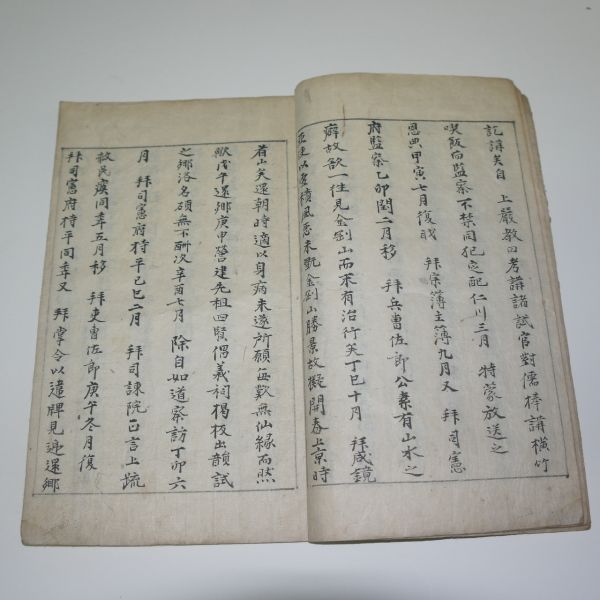 記講矣自 上嚴教曰考講諸試官對儒棒講橫竹
喫飯而監察不禁同犯定配仁川三月 特蒙放送之
恩典甲寅七月復職 拜 簿主簿九月又 拜司憲
府監察乙卯閏二月移 拜兵曹佐郎公素有山水之
癖故欲一往見金剛山而未有治行矣丁巳十月 拜咸鏡
以 積風 未 金剛山勝景故擬開春上京時
看山矣還朝時適以身病未遂所願每歎無仙緣而然
歟戊午還鄉庚申營建先祖四賢傑義祠揭板出韻試
之鄉洛名碩無不酬次辛酉七月 除自如道察訪丁卯六
月 拜司憲府持平己巳二月 拜司諫院正言上疏
救民瘼同年五月移 拜吏曹佐郎庚午冬月復
拜司憲府持平同年又 拜掌令以違牌見遞還鄉